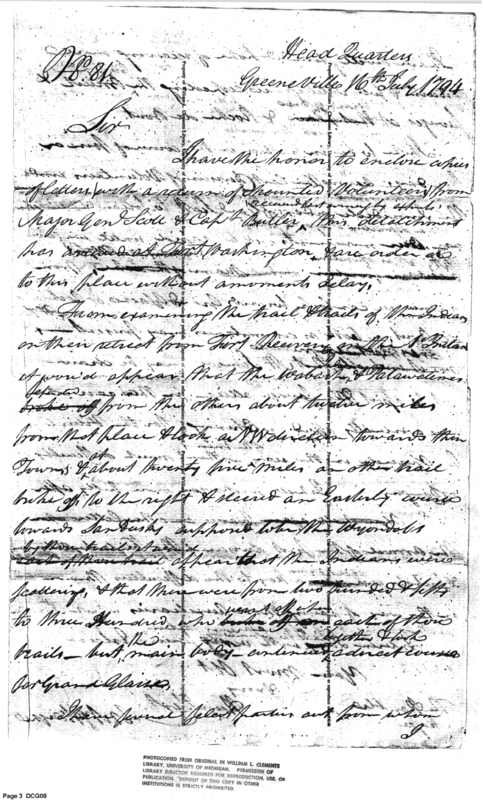 No. 81.
Head Quarters
Greeneville 16th July 1794
Sir
I have the honor to enclose copies
of letters, with a return of Mounted Volunteers, from
received last evening by express
Major Genl. Scott & Capt. Butler, this detachment
has arrived at Fort Washington, & are ordered
to this place without a moments delay.
From examining the trail & tracks of the Indians
on their retreat from Fort Recovery on the 1st Instant
it wou'd appear that the Wabash & Putawatimes
separated
broke off from the others about twelve miles
from that place & took a NW direction towards their
Towns & at about twenty five miles an other trail
broke off to the right & steered an Easterly course
towards Sandusky supposed to be the Wyandots
by their trails it wou'd
appear that the Indians were
scattering, & that there were from two hundred & fifty
to three Hundred, who went off on each of those
trails - but the main body continued together & took a direct course
for Grand Glaize,
I have several select parties out from whom
I
PHOTOCOPIED FROM ORIGINAL IN WILLIAM L. CLEMENTS
LIBRARY, UNIVERSITY OF MICHIGAN. PERMISSION OF
LIBRARY DIRECTOR REQUIRED FOR REPRODUCTION, USE, OR
PUBLICATION. DEPOSIT OF THIS COPY IN OTHER
INSTITUTIONS IS STRICTLY PROHIBITED.
Page 3 DCG08